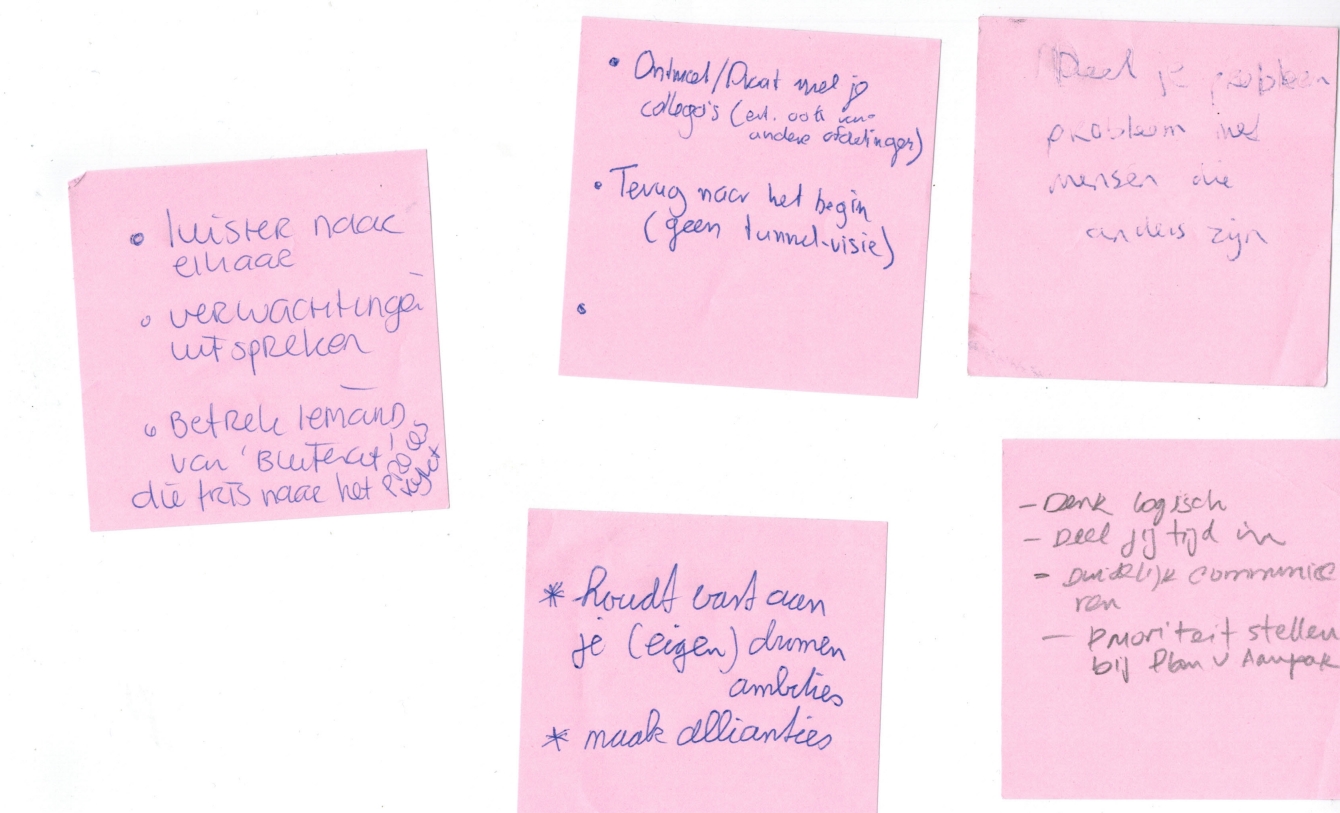 • luister naar
elkaar
• verwachtingen
uitspreken
• Betrek iemand
van 'Buitenaf'
die fris naar het proces
kijkt
• Ontmoet/Praat met je
collega's (evt. ook van
andere afdelingen)
• Terug naar het begin
(geen tunnel-visie)
•
Deel je probleem
probleem met
mensen die
anders zijn
* houdt vast aan
je (eigen) dromen
ambities
* maak allianties
- Denk logisch
- Deel jij tijd in
- Duidelijk communice
ren
- prioriteit stellen
bij Plan v Aanpak